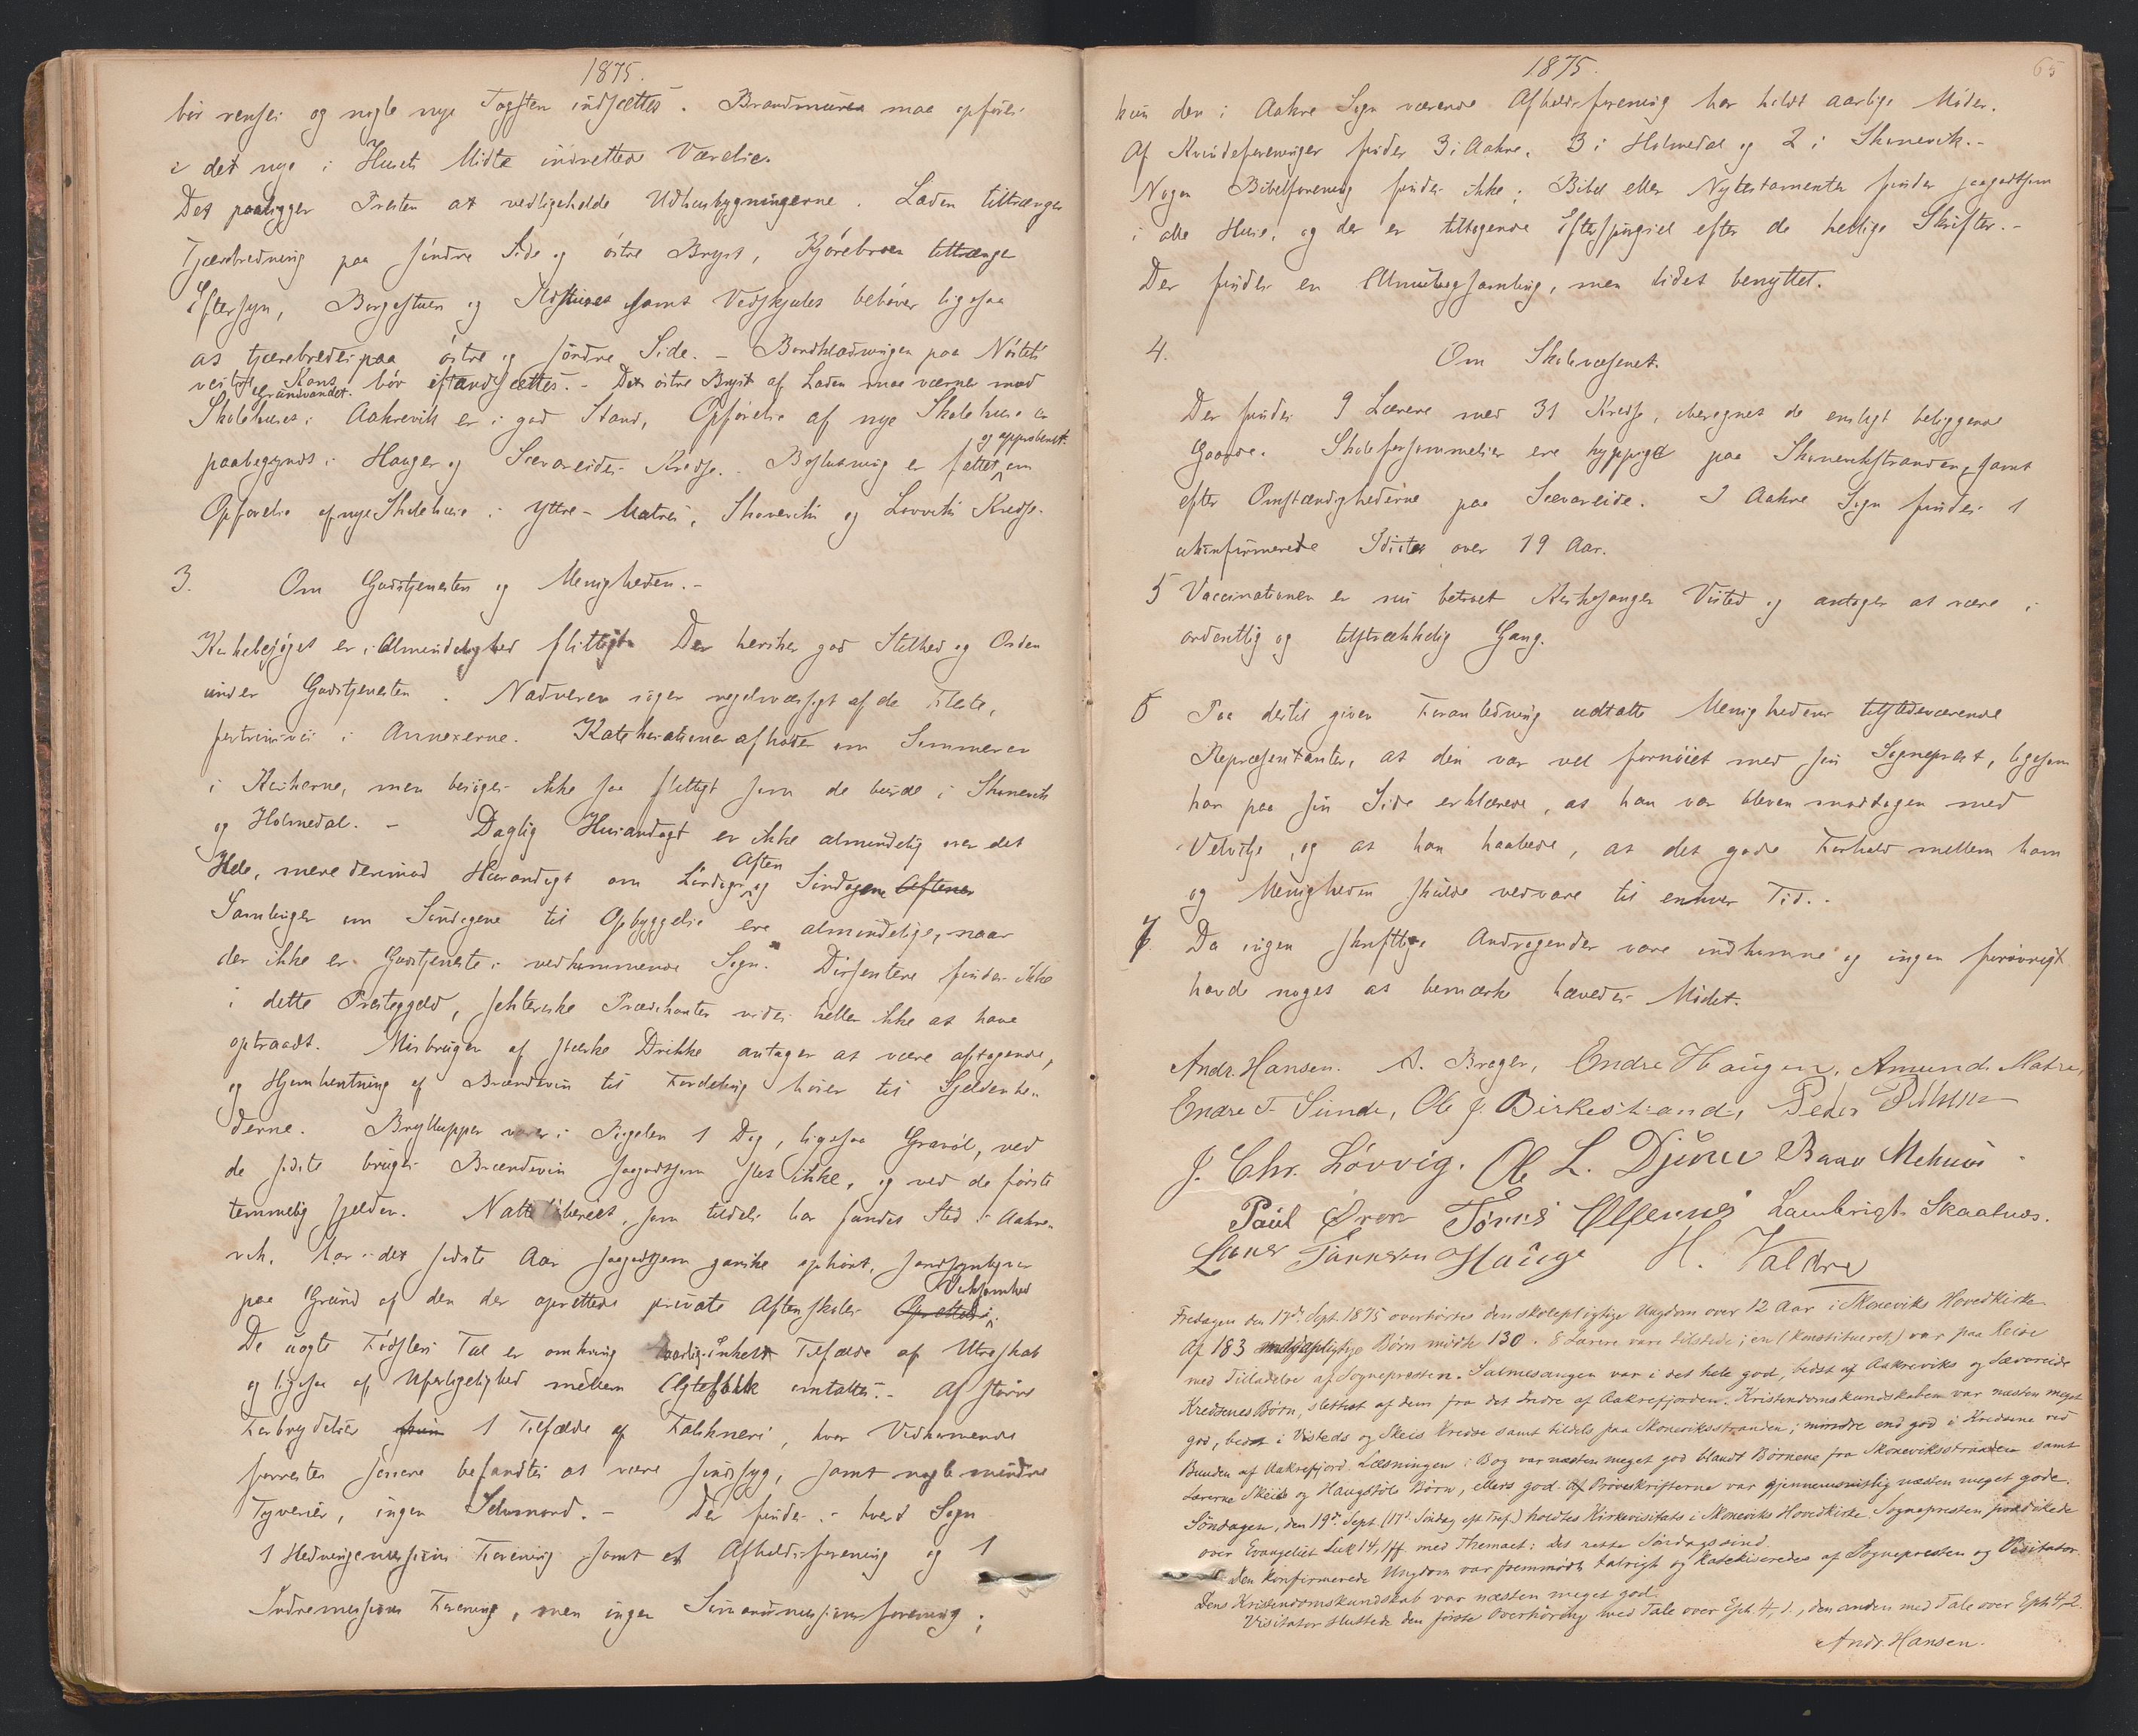 1875.
bør renses og nogle nye Tagsten indsættes. Brandmuren maa opføres
i det nye i Husets Midte indrettede Værelse.
Det paaligger Presten at vedligeholde Udhusbygningerne. Laden tiltrænger
Tjærebredning paa søndre Side og østre Bryst, Kjørebroen tiltrænger
Eftersyn, Borgestuen og Ildhuset samt Vedskjulet behøver ligesaa
at tjærebredes paa østre og søndre Side. – Bordklædningen paa Nøstets
vestre Kans bør istandsættes. – Det østre Bryst af Laden maa værnes mod
Grundvandet.
Skolehuset i Aakrevik er i god Stand, Opførelse af nye Skolehuse er
paabegyndt i Hauger og Sævareides Kredse. Beslutning er fattet og approberet om
Opførelse af nye Skolehuse i Yttre-Matres, Skoneviks og Løvviks Kredse.
3. Om Gudstjenesten og Menigheden. –
Kirkebesøget er i Almindelighed flittigt. Der hersker god Stilhed og Orden
under Gudstjenesten. Nadveren søges regelmæssigt af de Fleste,
fortrinsvis i Annexerne. Katekisationer afholdes om Sommeren
i Kirkerne, men besøges ikke saa flittigt som de burde i Skonevik
og Holmedal. – Daglig Husandagt er ikke almindelig over det
Hele, mere derimod Husandagt om Lørdags Aften og Søndagene Aftener
Samlinger om Søndagene til Opbyggelse ere almindelige, naar
der ikke er Gudstjeneste i vedkommende Sogn. Dissentere findes ikke
i dette Prestegjeld, sekteriske Prædikanter vides heller ikke at have
optraadt. Misbrugen af stærke Drikke antages at være aftagende,
og Hjemhentning af Brændevin til Fordeling hører til Sjeldenhe-
derne. Brylluper varer i Regelen 1 Dag, ligesaa Gravøl, ved
de sidste bruges Brændevin saagodtsom slet ikke, og ved de første
temmelig sjelden. Natteløberiet, som tildels har fundet Sted i Aakre-
vik, har i det sidste Aar saagodtsom ganske ophørt, sandsynligvis
paa Grund af den der oprettede private Aftenskoles Oprettelse Virksomhed.
De uægte Fødslers Tal er omkring Enkelt Tilfælde af Utroskab
og ligesaa af Uforligelighed mellem Ægtefolk omtaltes. – Af større
Forbrydelser kun 1 Tilfælde af Falskneri, hvor Vedkommende
forresten senere befandtes at være sindssyg, samt nogle mindre
Tyverier, ingen Selvmord. – Der findes i hvert Sogn
1 Hedningemissions Forening samt et Afholdsforening og 1
Indremissions Forening, men ingen Sømandsmissionsforening;
1875. 65
kun den i Aakre Sogn værende Afholdsforening har holdt aarlige Møder.
Af Kvindeforeninger findes 3 i Aakre, 3 i Holmedal og 2 i Skonevik. –
Nogen Bibelforening findes ikke; Bibel eller Nytestamente findes saagodtsom
i alle Huse, og der er tiltagende Efterspørgsel efter de hellige Skrifter. –
Der findes en Almuebogsamling, men lidet benyttet.
4. Om Skolevæsenet.
Der findes 9 Lærere med 31 Kredse, iberegnet de ensligt beliggende
Gaarde. Skoleforsømmelser ere hyppige paa Skonevikstranden, samt
efter Omstændighederne paa Sævareide. I Aakre Sogn findes 1
ukonfirmerede Idioter over 19 Aar.
5 Vaccinationen er nu betroet Kirkesanger Visted og antages at være i
ordentlig og tilstrækkelig Gang.
6 Paa dertil given Foranledning udtalte Menighedens tilstedeværende
Repræsentanter, at den var vel fornøiet med sin Sogneprest, ligesom
han paa sin Side erklærede, at han var bleven modtagen med
Velvilje, og at han haabede, at det gode Forhold mellem ham
og Menigheden skulde vedvare til enhver Tid. –
7. Da ingen skriftlige Andragender vare indkomne og ingen forøvrigt
havde noget at bemærke hævedes Mødet.
Andr. Hansen. A. Brager, Endre Haugen, Amund Matre,
Endre T. Sunde, Ole J. Birkestrand, Peder
J. Chr. Løvvig. Ole L. Djuve Baar Mehus
Paul Tørris Lambrigt Skaalnes.
Tørresen Hauge H. Valdre
Fredagen den 17de Sept. 1875 overhørtes den skolepligtige Ungdom over 12 Aar i Skoneviks Hovedkirke
Af 183 mødepligtige Børn mødte 130. 8 Lærere vare tilstede; en (konstitueret) var paa Reise
med Tilladelse af Sognepresten. Salmesangen var i det hele god, bedst af Aakreviks og Sævareide
Kredsenes Børn, slettest af dem fra det Indre af Aakrefjorden. Kristendomskundskaben var næsten meget
god, bedst i Visteds og Skeis Kredse samt tildels paa Skoneviksstranden; mindre end god i Kredsene ved
Bunden af Aakrefjord. Læsningen i Bog var næsten meget god blandt Børnene fra Skoneviksstranden samt
Lærerne Skeie og Haugstøls Børn, ellers god. Af Prøveskrifterne var gjennemsnitlig næsten meget gode.
Søndagen, den 19de Sept. (17de Søndag eft. Tref.) holdtes Kirkevisitats i Skoneviks Hovedkirke. Sognepresten prædikede
over Evangeliet Luk 14, 1ff med Themaet: Det rette Søndagssind.
Den konfirmerede Ungdom var fremmødt talrigt og katekiseredes af Sognepresten og Visitator.
Dens Kristendomskundskab var næsten meget god.
Visitator sluttede den første Overhøring med Tale over Eph. 4, 1., den anden med Tale over Eph 4, 2.
Andr. Hansen.